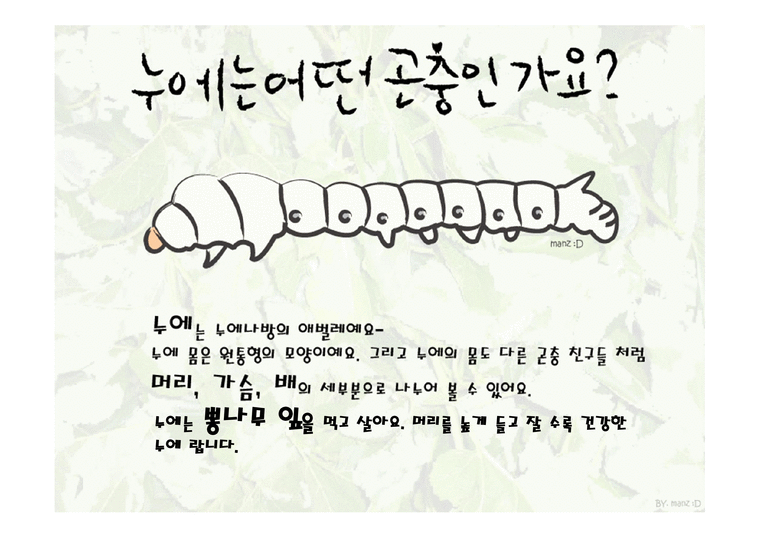 누에는 어떤 곤충인가요?
manz :D
누에는 누에나방의 애벌레예요~
누에 몸은 원통형의 모양이예요. 그리고 누에의 몸도 다른 곤충 친구들 처럼
머리, 가슴, 배의 세부분으로 나누어 볼 수 있어요.
누에는 뽕나무 잎을 먹고 살아요. 머리를 높게 들고 잘 수록 건강한
누에 랍니다.
BY. manz :D